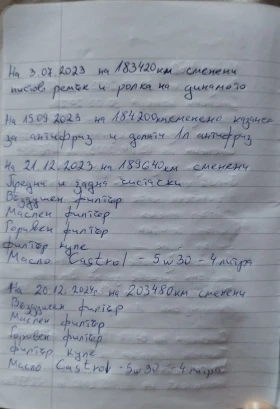 На 3.07.2023 на 183420км сменени
писов ремък и ролка на динамото
На 15.09.2023 на 184200км сменено казанче
за антифриз и долят 1л антифриз
На 21.12.2023 на 189640км сменени
Предна и задна чистачки
Въздушен филтър
Маслен филтър
Горивен филтър
филтър купе
Масло Castrol - 5w30 - 4 литра
На 20.12.2024г на 203480км сменени
Въздушен филтър
Маслен филтър
Горивен филтър
филтър купе
Масло Castrol - 5w30 - 4 литра